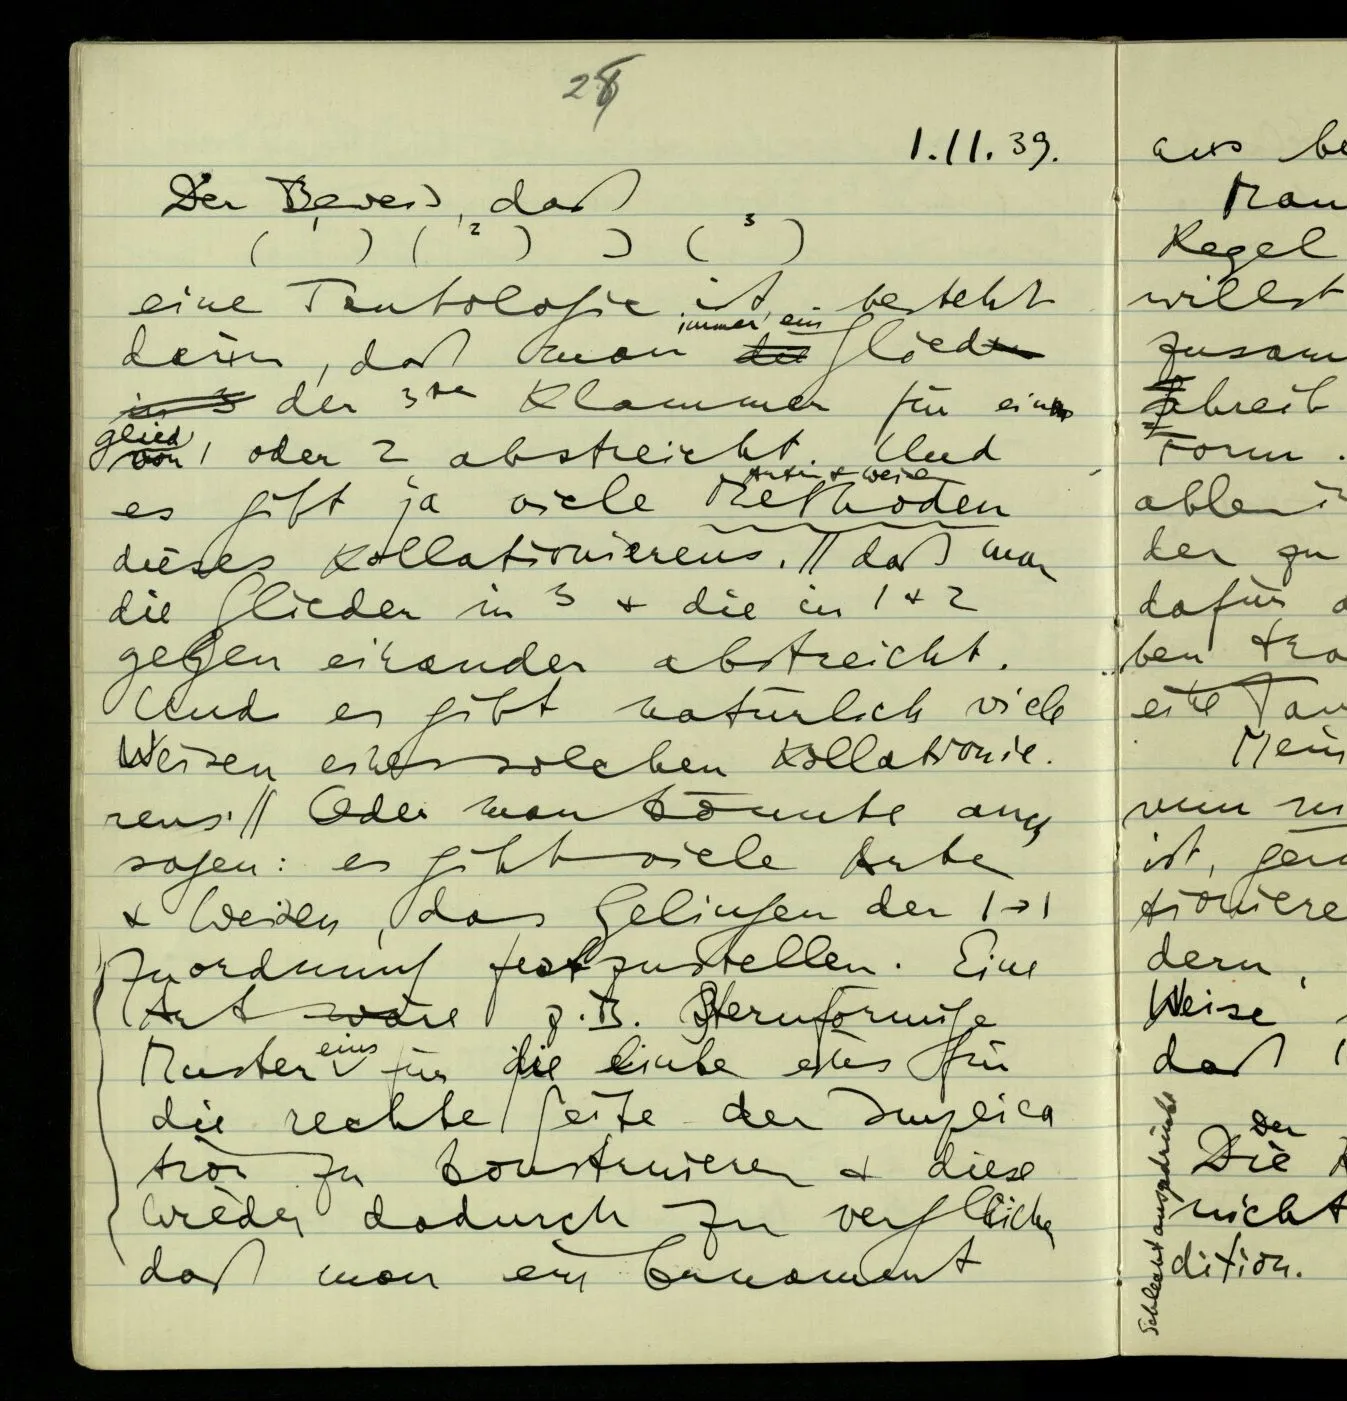 28
1.11.39.
Der Beweis, daß
( 1 ) ( 2 ) ⊃ ( 3 )
eine Tautologie ist, besteht
darin, daß man die immer ein Glieder
in 3 der 3ten Klammer für ein
glied von 1 oder 2 abstreicht. Und
es gibt ja viele Methoden Arten & Weisen
dieses Kollationierens. // daß man
die Glieder in 3 & die in 1 & 2
gegen einander abstreicht.
Und es gibt natürlich viele
Weisen eines solchen Kollationie-
rens. // Oder man könnte auch
sagen: es gibt viele Arten
& Weisen, das Gelingen der 1→1
Zuordnung festzustellen. Eine
Art wäre z.B. sternförmige
Muster eins für die linke eins für
die rechte Seite der Implica
tion zu konstruieren & diese
wieder dadurch zu vergleichen
daß man ein Ornament
aus be
Man
Regel
willst
zusam
schreib
Form.
able
der zu
dafür
ben
eine Tau
Mein
nun
ist,
tioniere
dern,
Weise
daß
Die Der
nicht
dition.
Schlecht ausgedrückt